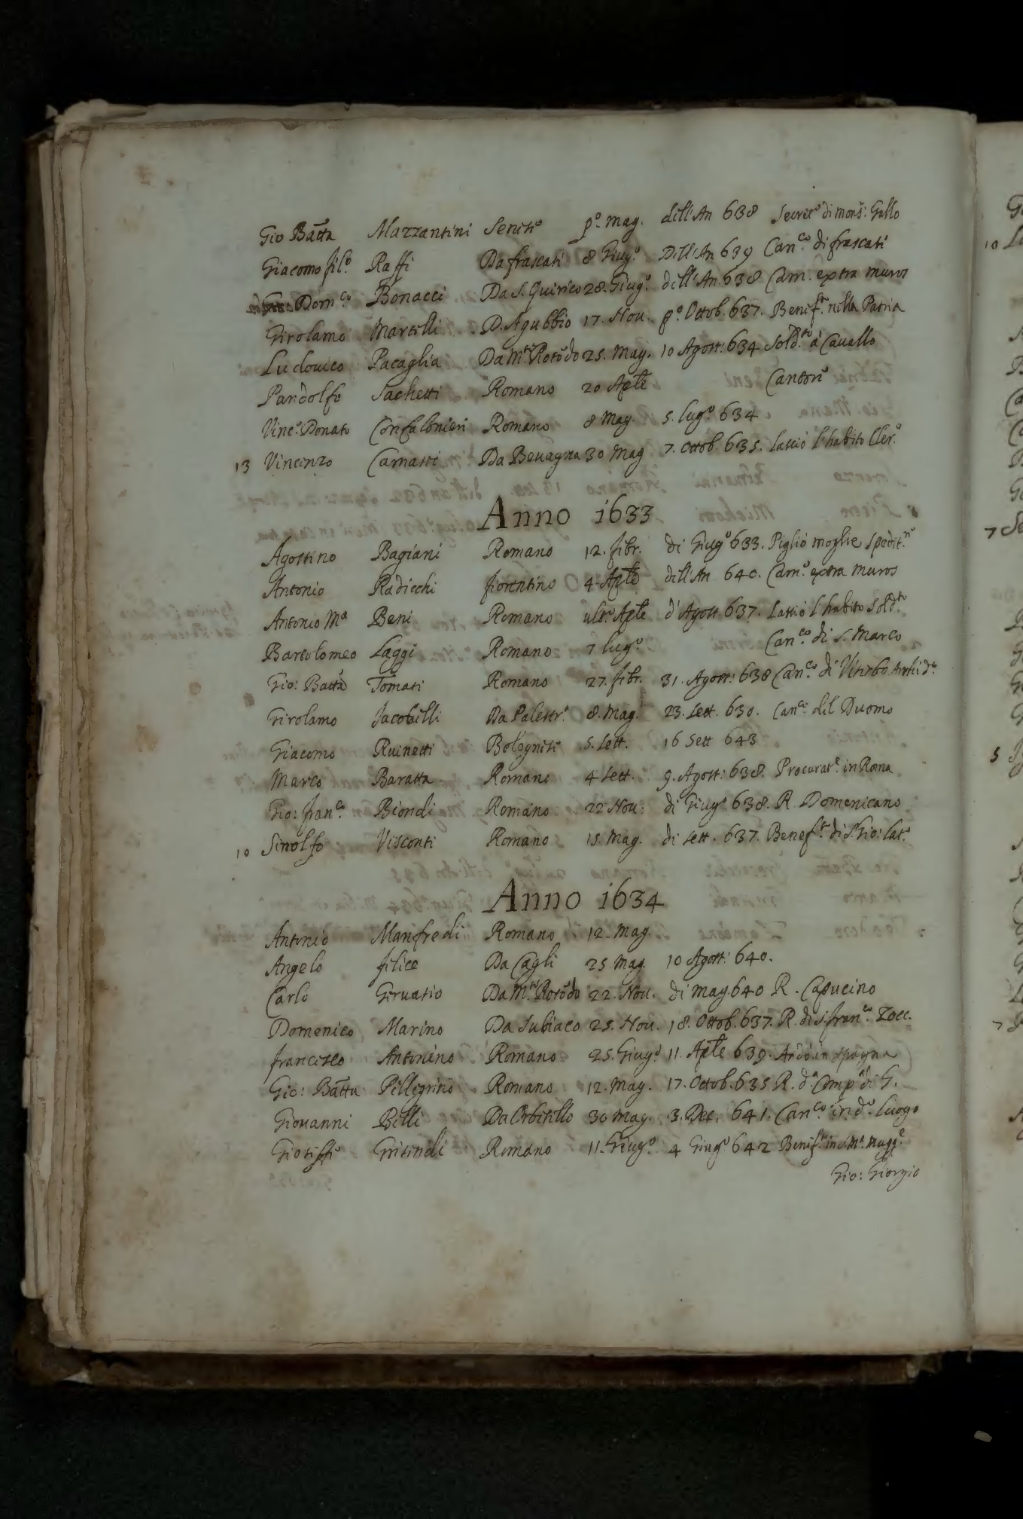 Gio Batta Mazzantini Senese pº. Mag. dell'An 638 Secretº di mons: Gallo
Giacomo fil.º Raffi Da frascati 8 Giugº. Dell'An 639 Can.co di frascati
Dom.co Bonacci Da S. Quirico 28. Giugº. dell'An. 638. Cam. extra muros
Girolamo Martelli D'Agubbio 17. Nov. pº. Ottob. 637. Benef.to nella Patria
Ludovico Pacaglia Da M.te Rotōdo 25. Mag. 10 Agost. 634 Sold.to à Cavallo
Pandolfo Sachetti Romano 20 Aple Cantore
Vinc.º Donato Confalonieri Romano 8 Mag. 5. lugº. 634
13 Vincenzo Camassi Da Bevagna 30 Mag 7. Ottob. 635. lassiò l'habito Cler.º
Anno 1633
Agostino Bagiani Romano 12. febr. di Giugº 633. Pigliò moglie
Antonio Radicchi fiorentino 4. Aple dell'An. 640. Cam.º extra muros
Antonio Mª Beni Romano ult.º Aple d'Agost 637. Lassiò l'habito Sold.to
Bartolomeo Laggi Romano 7 lugº. Can.co di S. Marco
Gio: Batta Tomati Romano 27. febr. 31. Agost: 638 Can.co di Viterbo
Girolamo Jacobelli Da Palestr.ª 8. Mag. 23. Sett. 630. Can.co del Duomo
Giacomo Ruinetti Bolognese 5. Sett. 16 Sett 643
Marco Baratta Romano 4 Sett. 9. Agost: 638. Procurat.e in Roma
Gio: fran.co Biondi Romano 22 Nov. di Giugº 638. R. Domenicano
10 Sinolfo Visconti Romano 15. Mag. di Sett. 637. Benef.to di S. Gio: Lat.º
Anno 1634
Antonio Manfredi Romano 12. Mag.
Angelo felice Da Cagli 25 Mag. 10 Agost: 640.
Carlo Gervatio Da M.te Rotōdo 22. Nov. di Mag 640 R. Capucino
Domenico Marino Da Subiaco 25. Nov. 18. Ottob. 637. R. di S. fran.co Zocc.
francesco Antonino Romano 25. Giugº 11. Aple 639. Andò in spagna
Gio: Batta Pellegrino Romano 12. Mag. 17. Ottob. 635 R. dª Comp.ª di G.
Giovanni Belli Da Orbitello 30 Mag. 3. Dec. 641. Can.co in dº. luogo
Gioseffe Gritindi Romano 11. Giugº. 4 Giugº 642 Benef.to in S. Mª. Magg.e
Gio: Giorgio